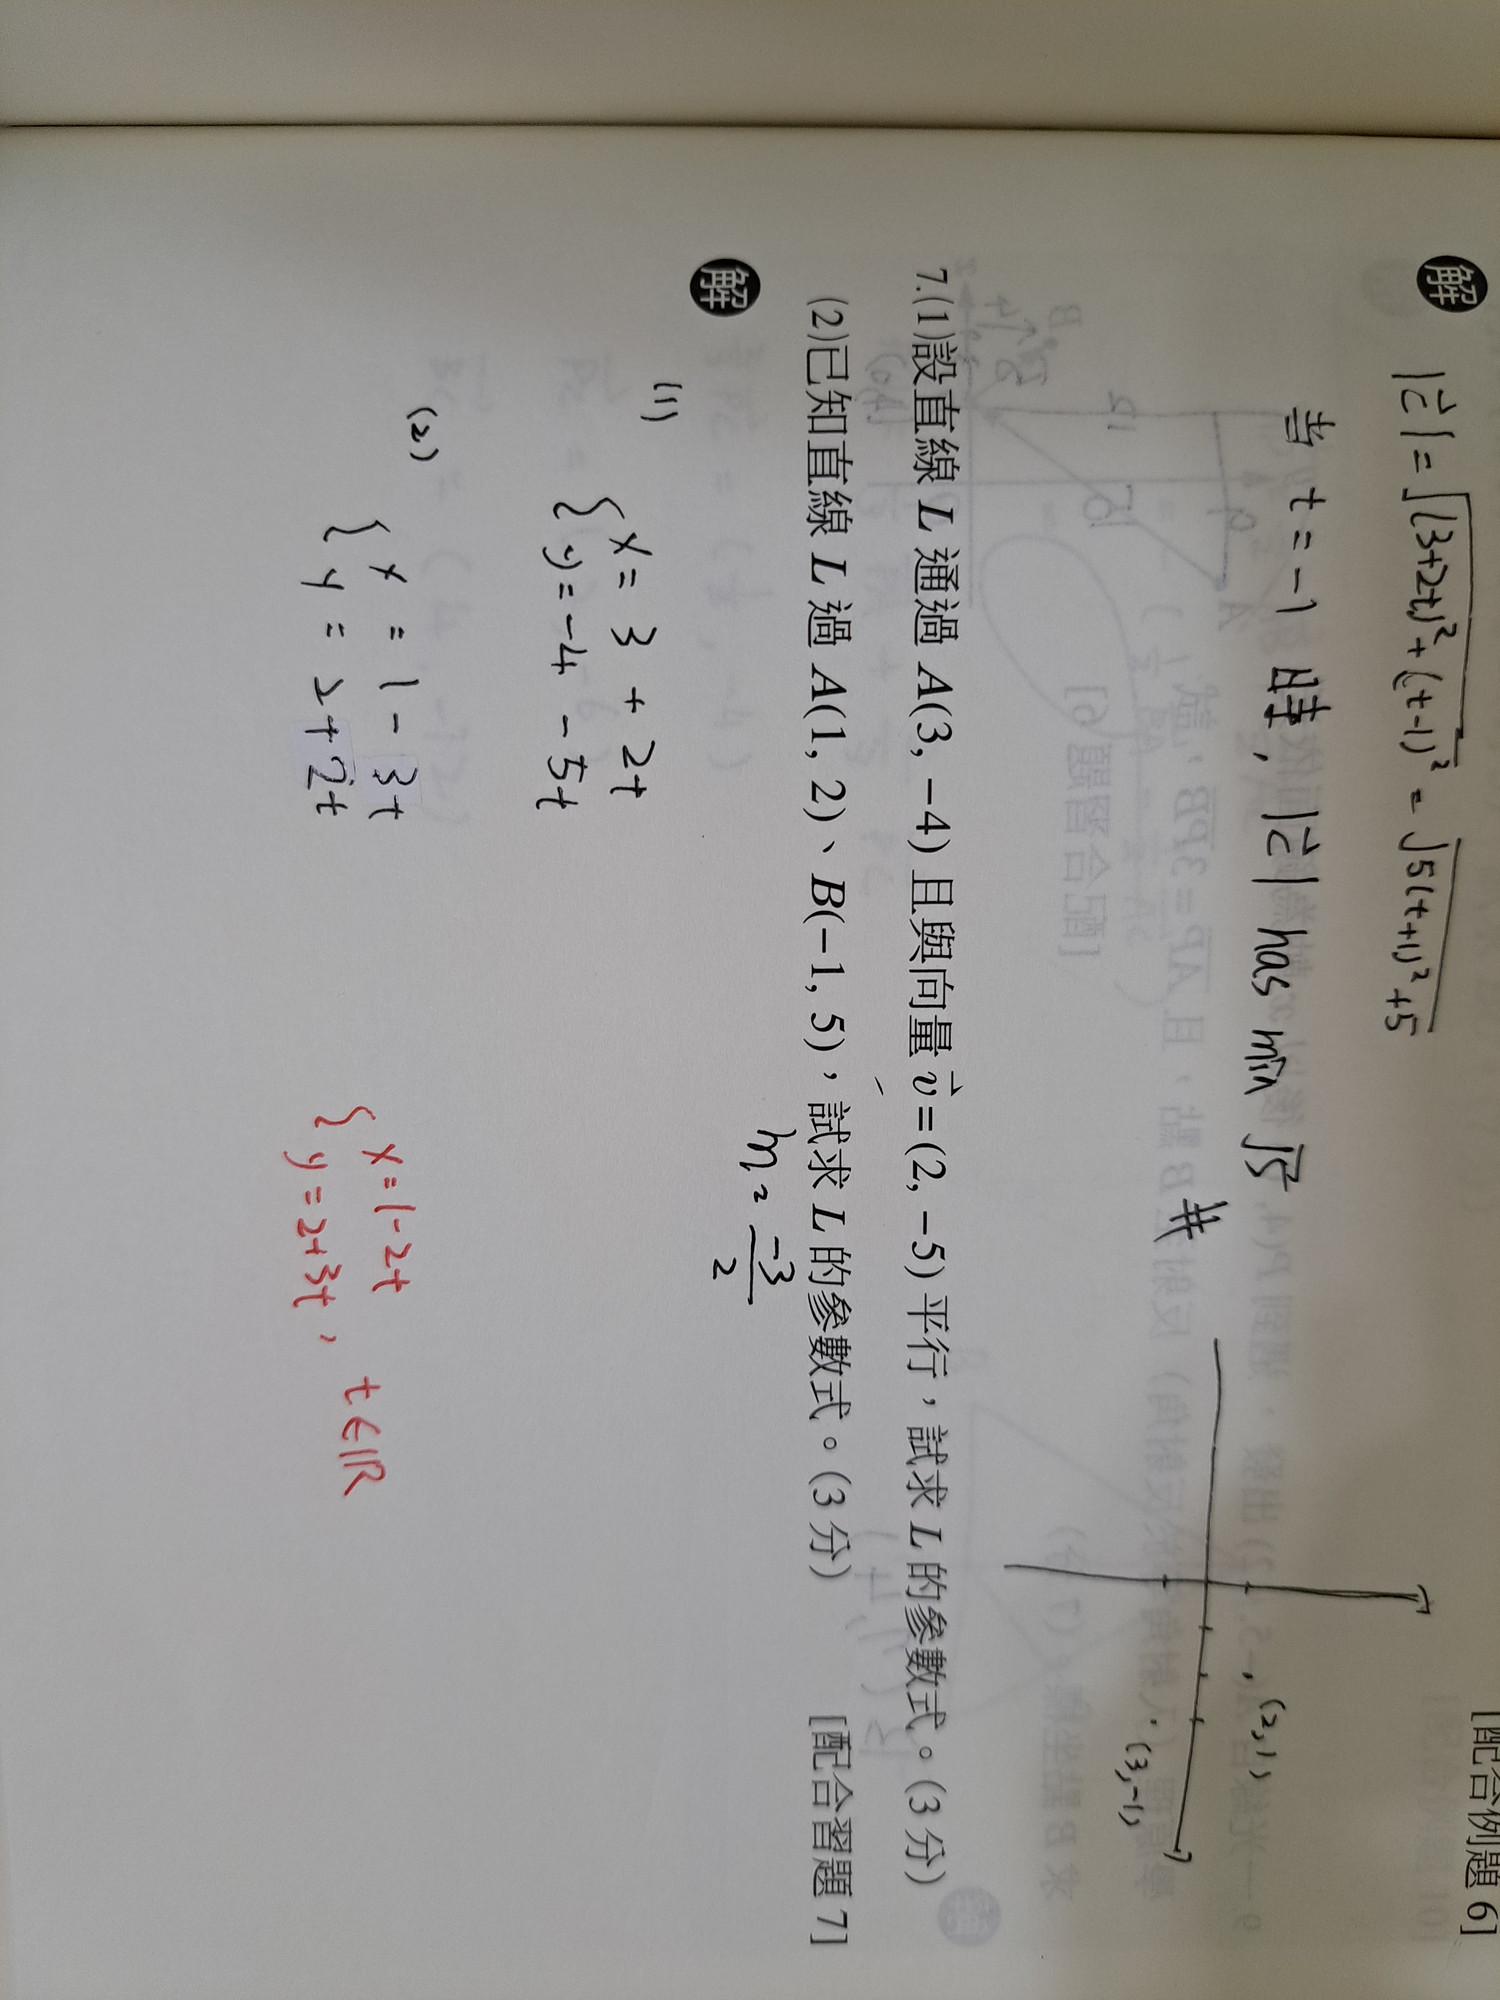 [配合例題 6]
解
|c⃗| = √(3+2t)²+(t-1)² = √5(t+1)²+5
当 t = -1 時, |c⃗| has min √5 #
(2,1)
(3,-1)
7.(1)設直線 L 通過 A(3, −4) 且與向量 v⃗=(2, −5) 平行，試求 L 的參數式。(3 分)
(2)已知直線 L 過 A(1, 2)、B(−1, 5)，試求 L 的參數式。(3 分) [配合習題 7]
解
m = -3/2
(1)
{ x = 3 + 2t
y = -4 - 5t
(2)
{ x = 1 - 3t
y = 2 + 2t
{ x = 1 - 2t
y = 2+3t, t∈ℝ